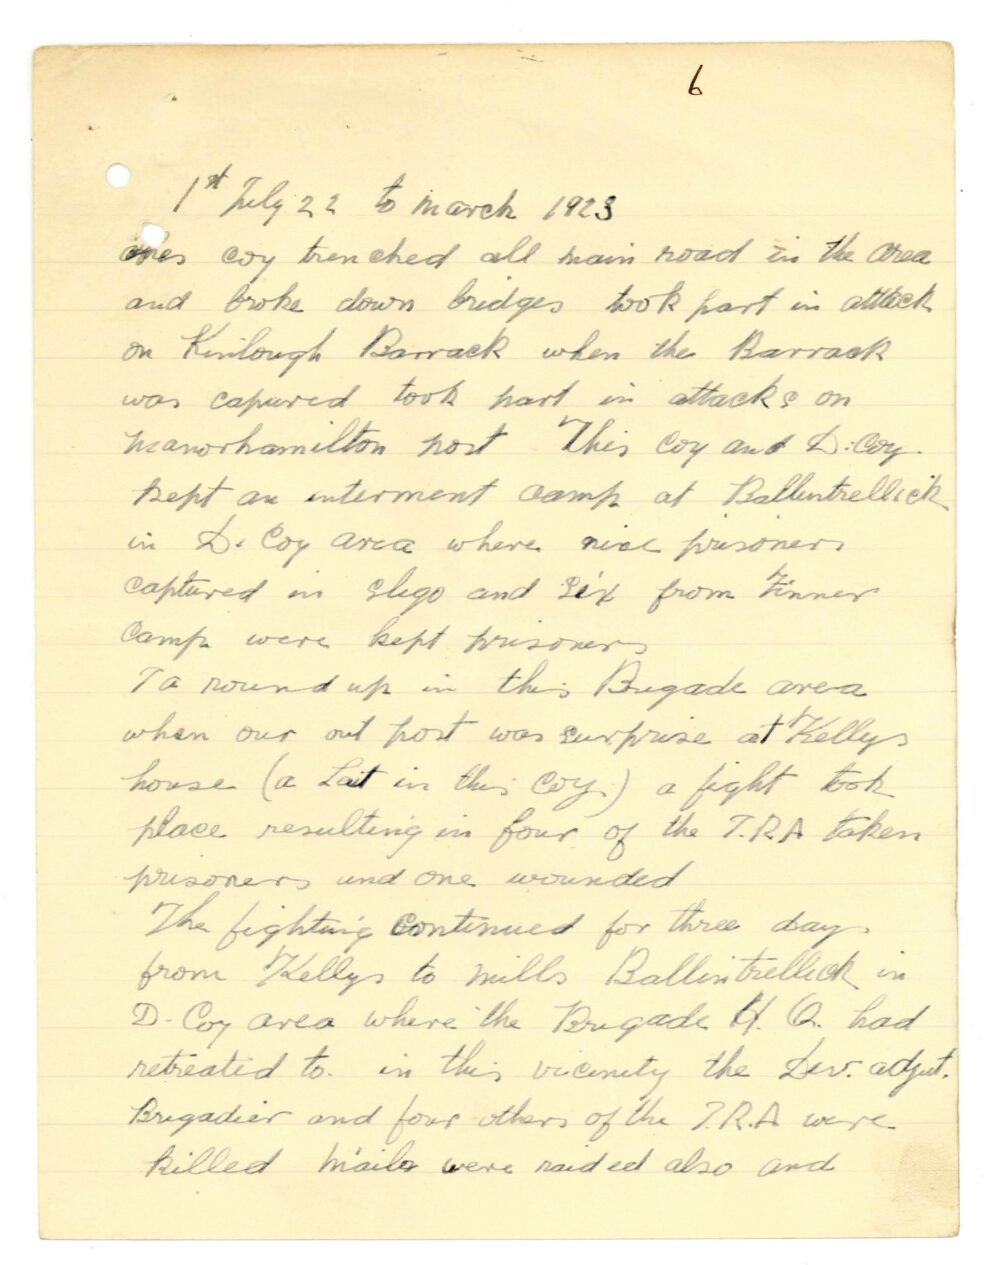 6
1st July 22 to March 1923
coy trenched all main road in the area
and broke down bridges took part in attack
on Kinlough Barrack when the Barrack
was capured took part in attacks on
Manorhamilton post This Coy and D. Coy.
kept an interment camp at Ballintrellick
in D. Coy area where nine prisoners
captured in Sligo and six from Finner
Camp were kept prisoners
In a round up in this Brigade area
when our out post was surprise at Kellys
house (a Lait in this Coy.) a fight took
place resulting in four of the I.R.A taken
prisoners and one wounded
The fighting continued for three days
from Kellys to Mills Ballintrellick in
D. Coy area where the Brigade H. Q. had
retreated to. in this vicinity the Div. adjut.
Brigadier and four others of the I.R.A were
killed Mails were raided also and